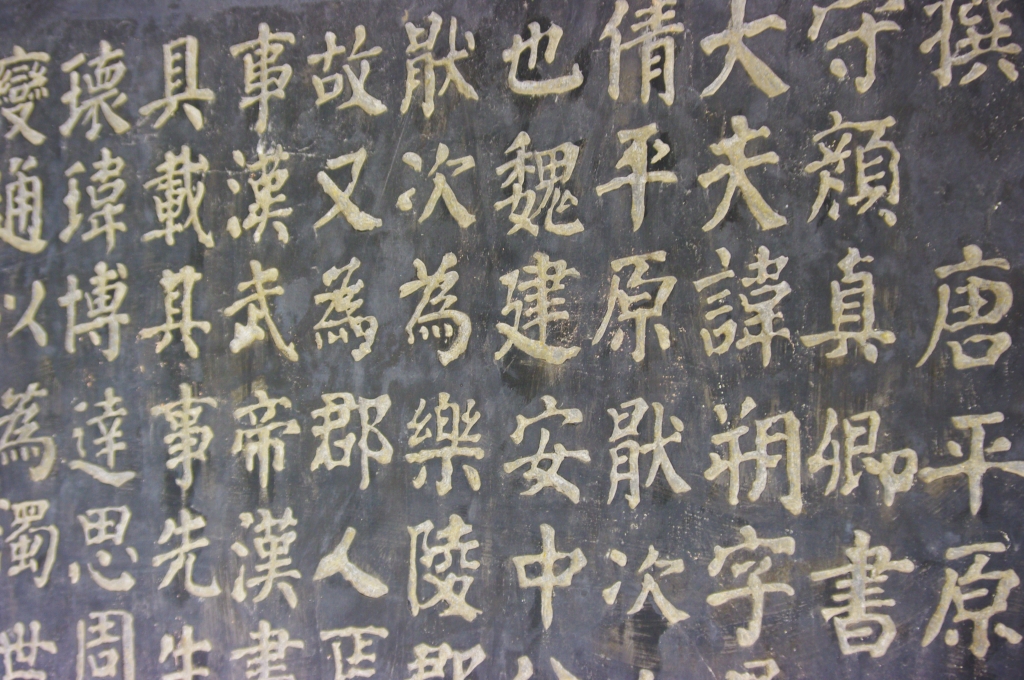 撰唐平原
守顏真卿書
大夫諱朔字
倩平原猒次
也魏建安中分
猒次為樂陵郡
故又為郡人
事漢武帝漢書
具載其事先生
瓌瑋博達思周
變通以為濁世